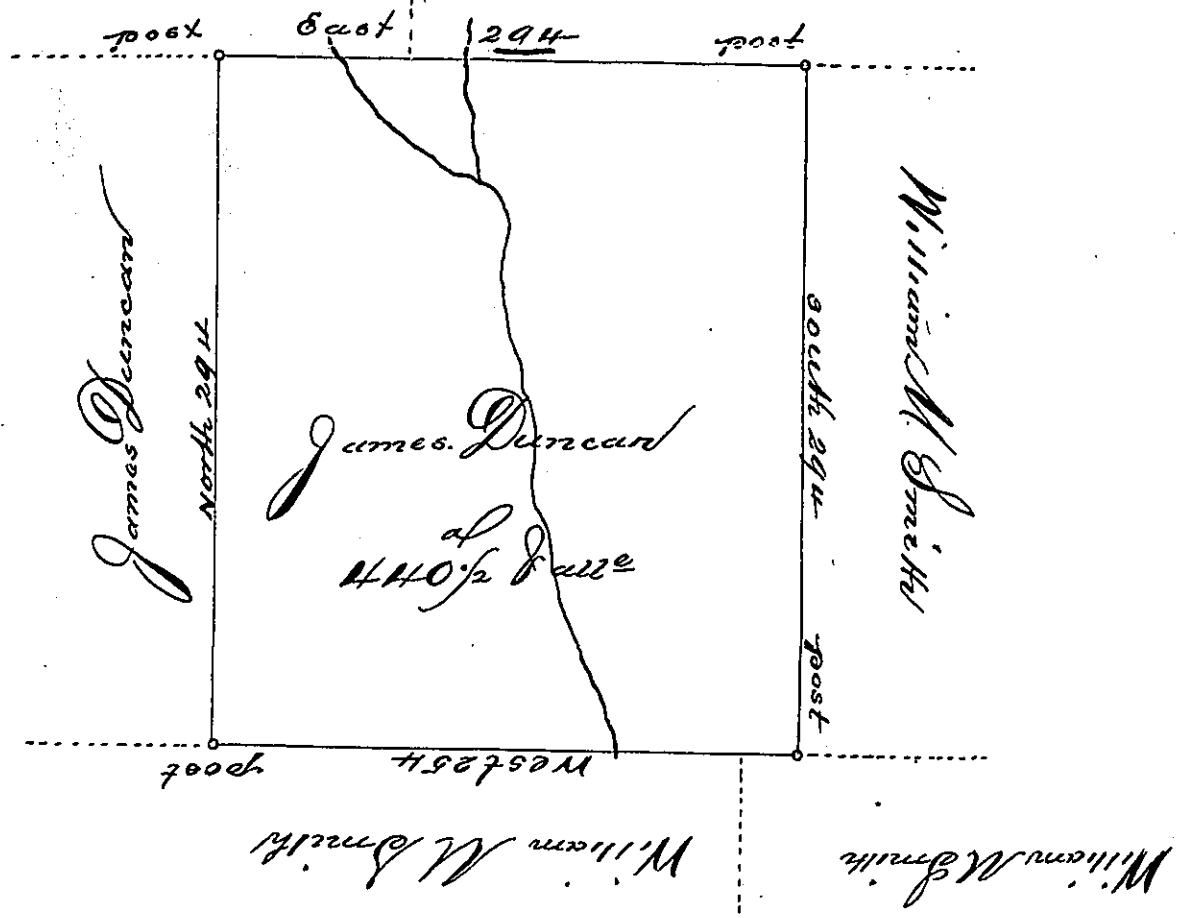 post East 294 post
James Duncan
North 294
James. Duncan
440 ac
South 294
post
William M Smith
West 254
post
William M Smith
William M Smith